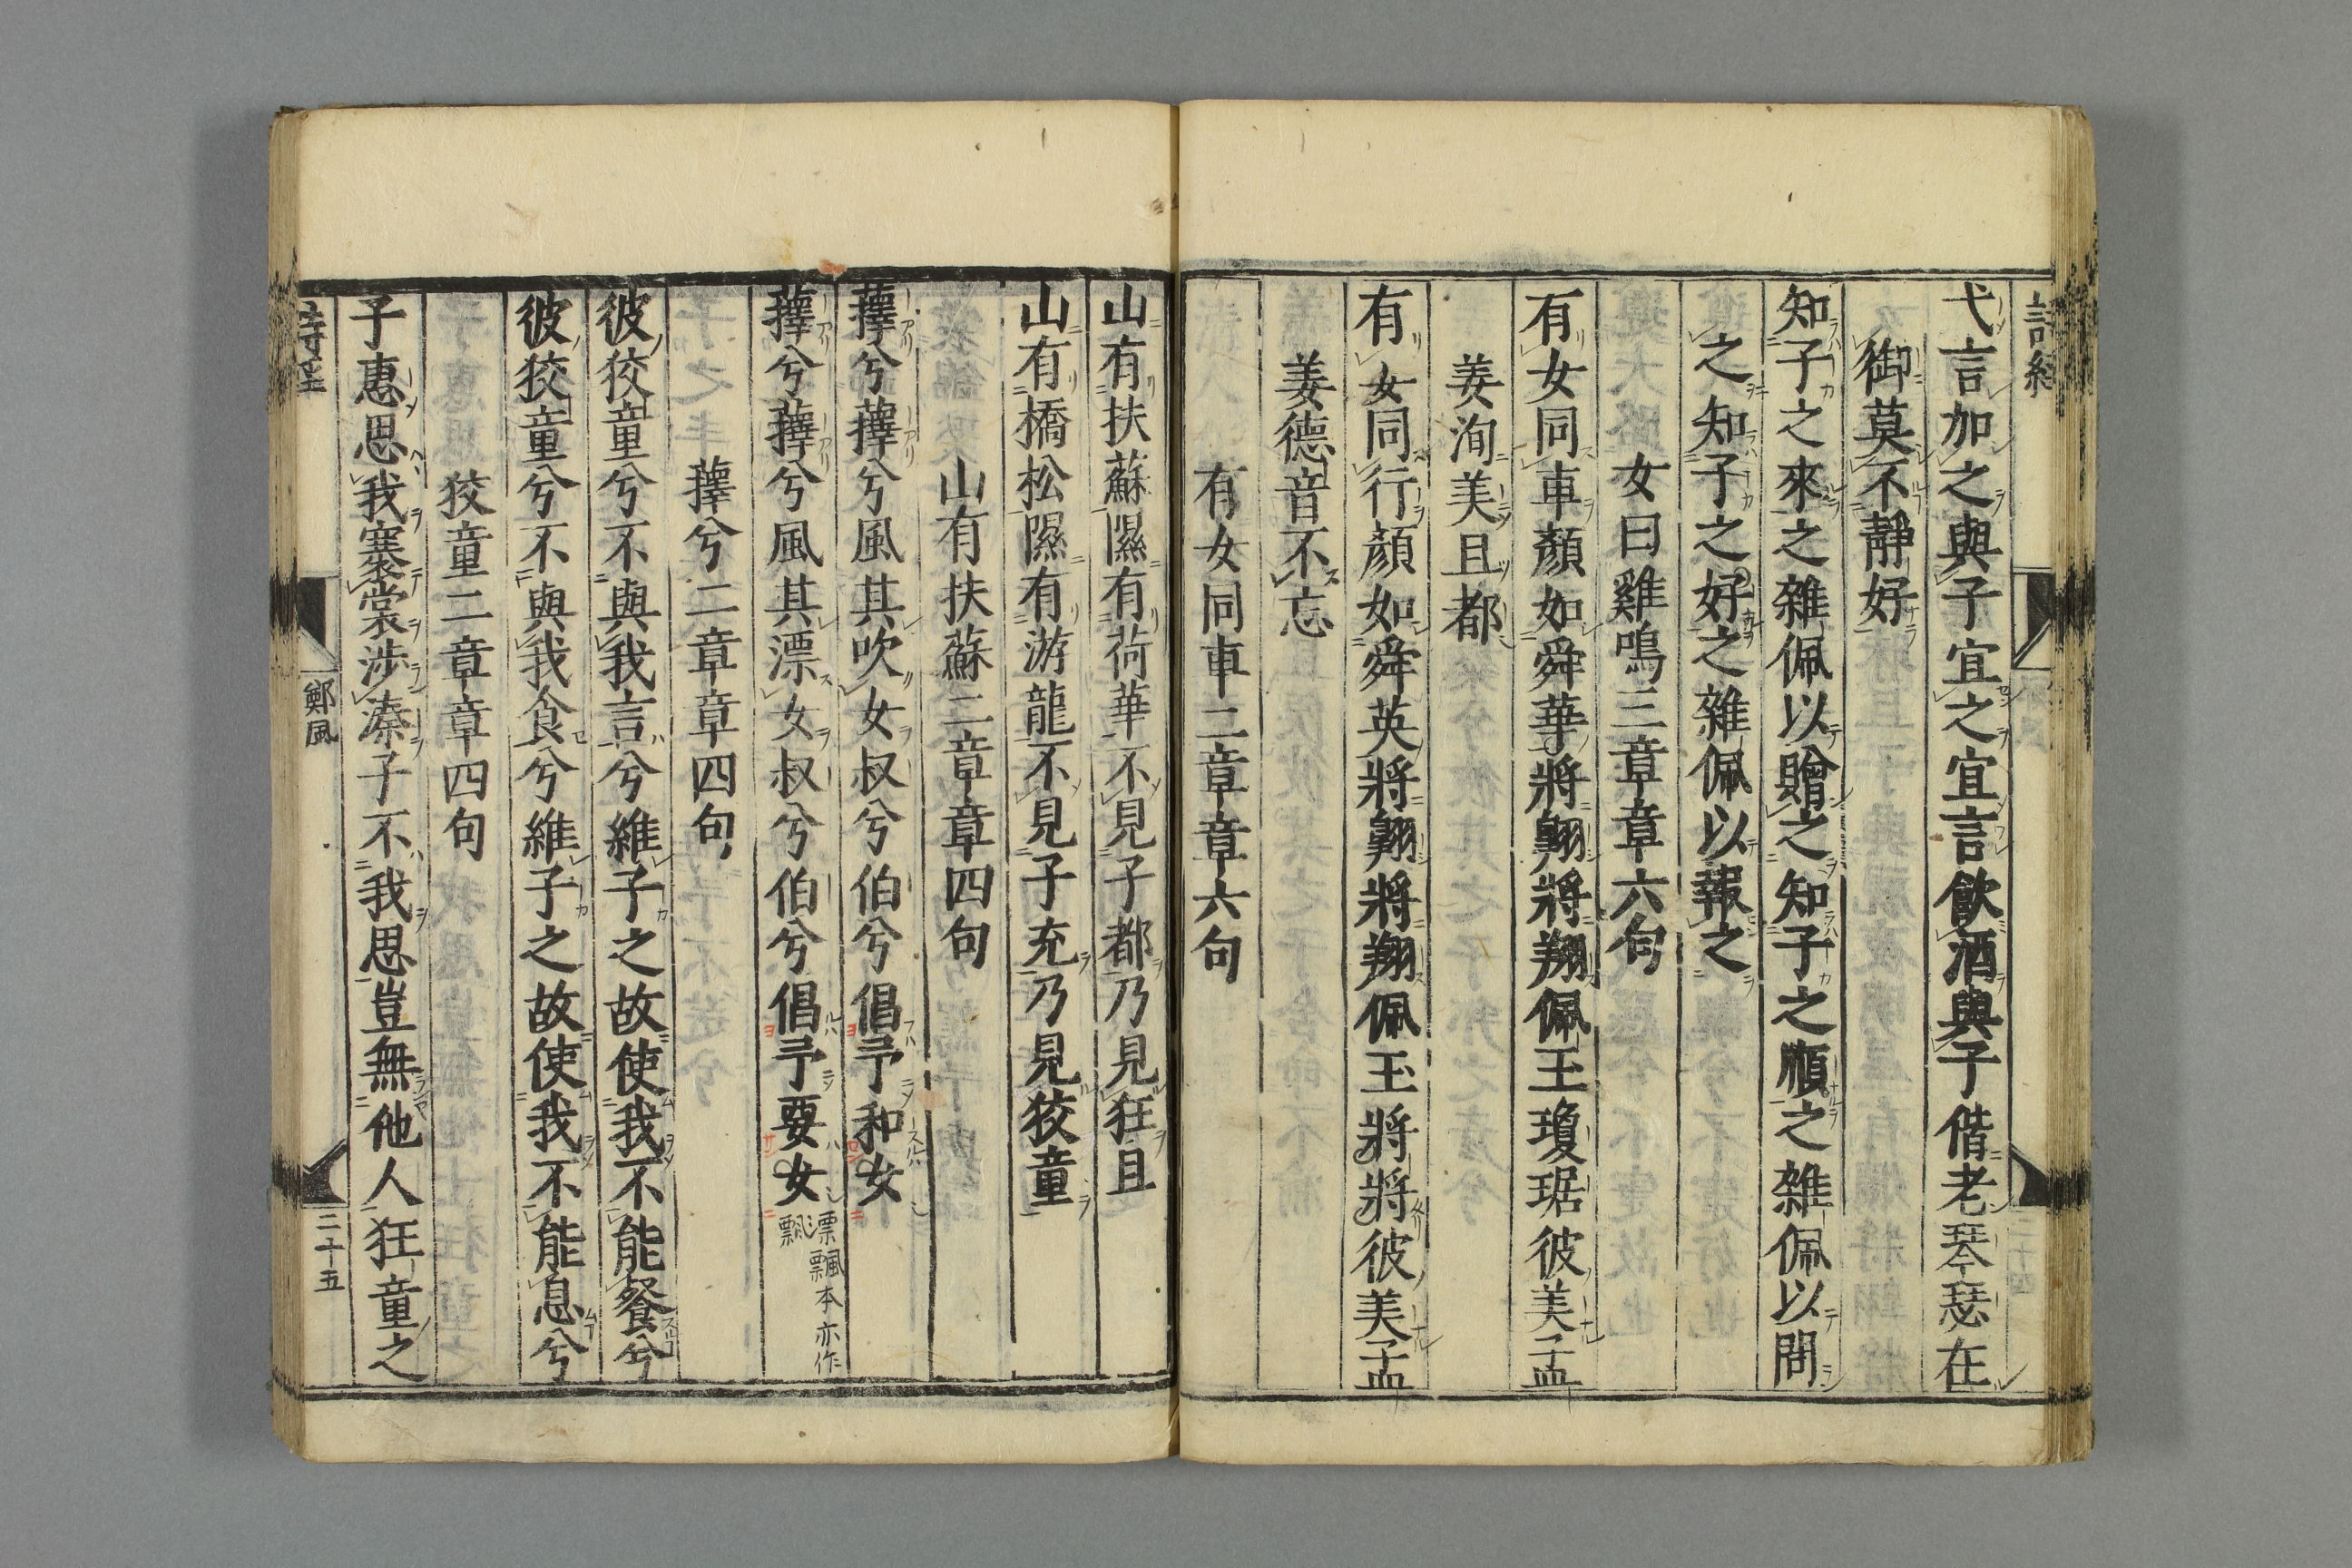 詩經
弋言加之與子宜之宜言飲酒與子偕老琴瑟在
御莫不靜好
知子之來之雜佩以贈之知子之順之雜佩以問
之知子之好之雜佩以報之
女曰雞鳴三章章六句
有女同車顏如舜華將翱將翔佩玉瓊琚彼美孟
姜洵美且都
有女同行顏如舜英將翱將翔佩玉將將彼美孟
姜德音不忘
有女同車二章章六句
山有扶蘇隰有荷華不見子都乃見狂且
山有橋松隰有游龍不見子充乃見狡童
山有扶蘇二章章四句
蘀兮蘀兮風其吹女叔兮伯兮倡予和女
蘀兮蘀兮風其漂女叔兮伯兮倡予要女
漂飄本亦作
飄
蘀兮二章章四句
彼狡童兮不與我言兮維子之故使我不能餐兮
彼狡童兮不與我食兮維子之故使我不能息兮
狡童二章章四句
子惠思我褰裳涉溱子不我思豈無他人狂童之
詩經
鄭風
二十五